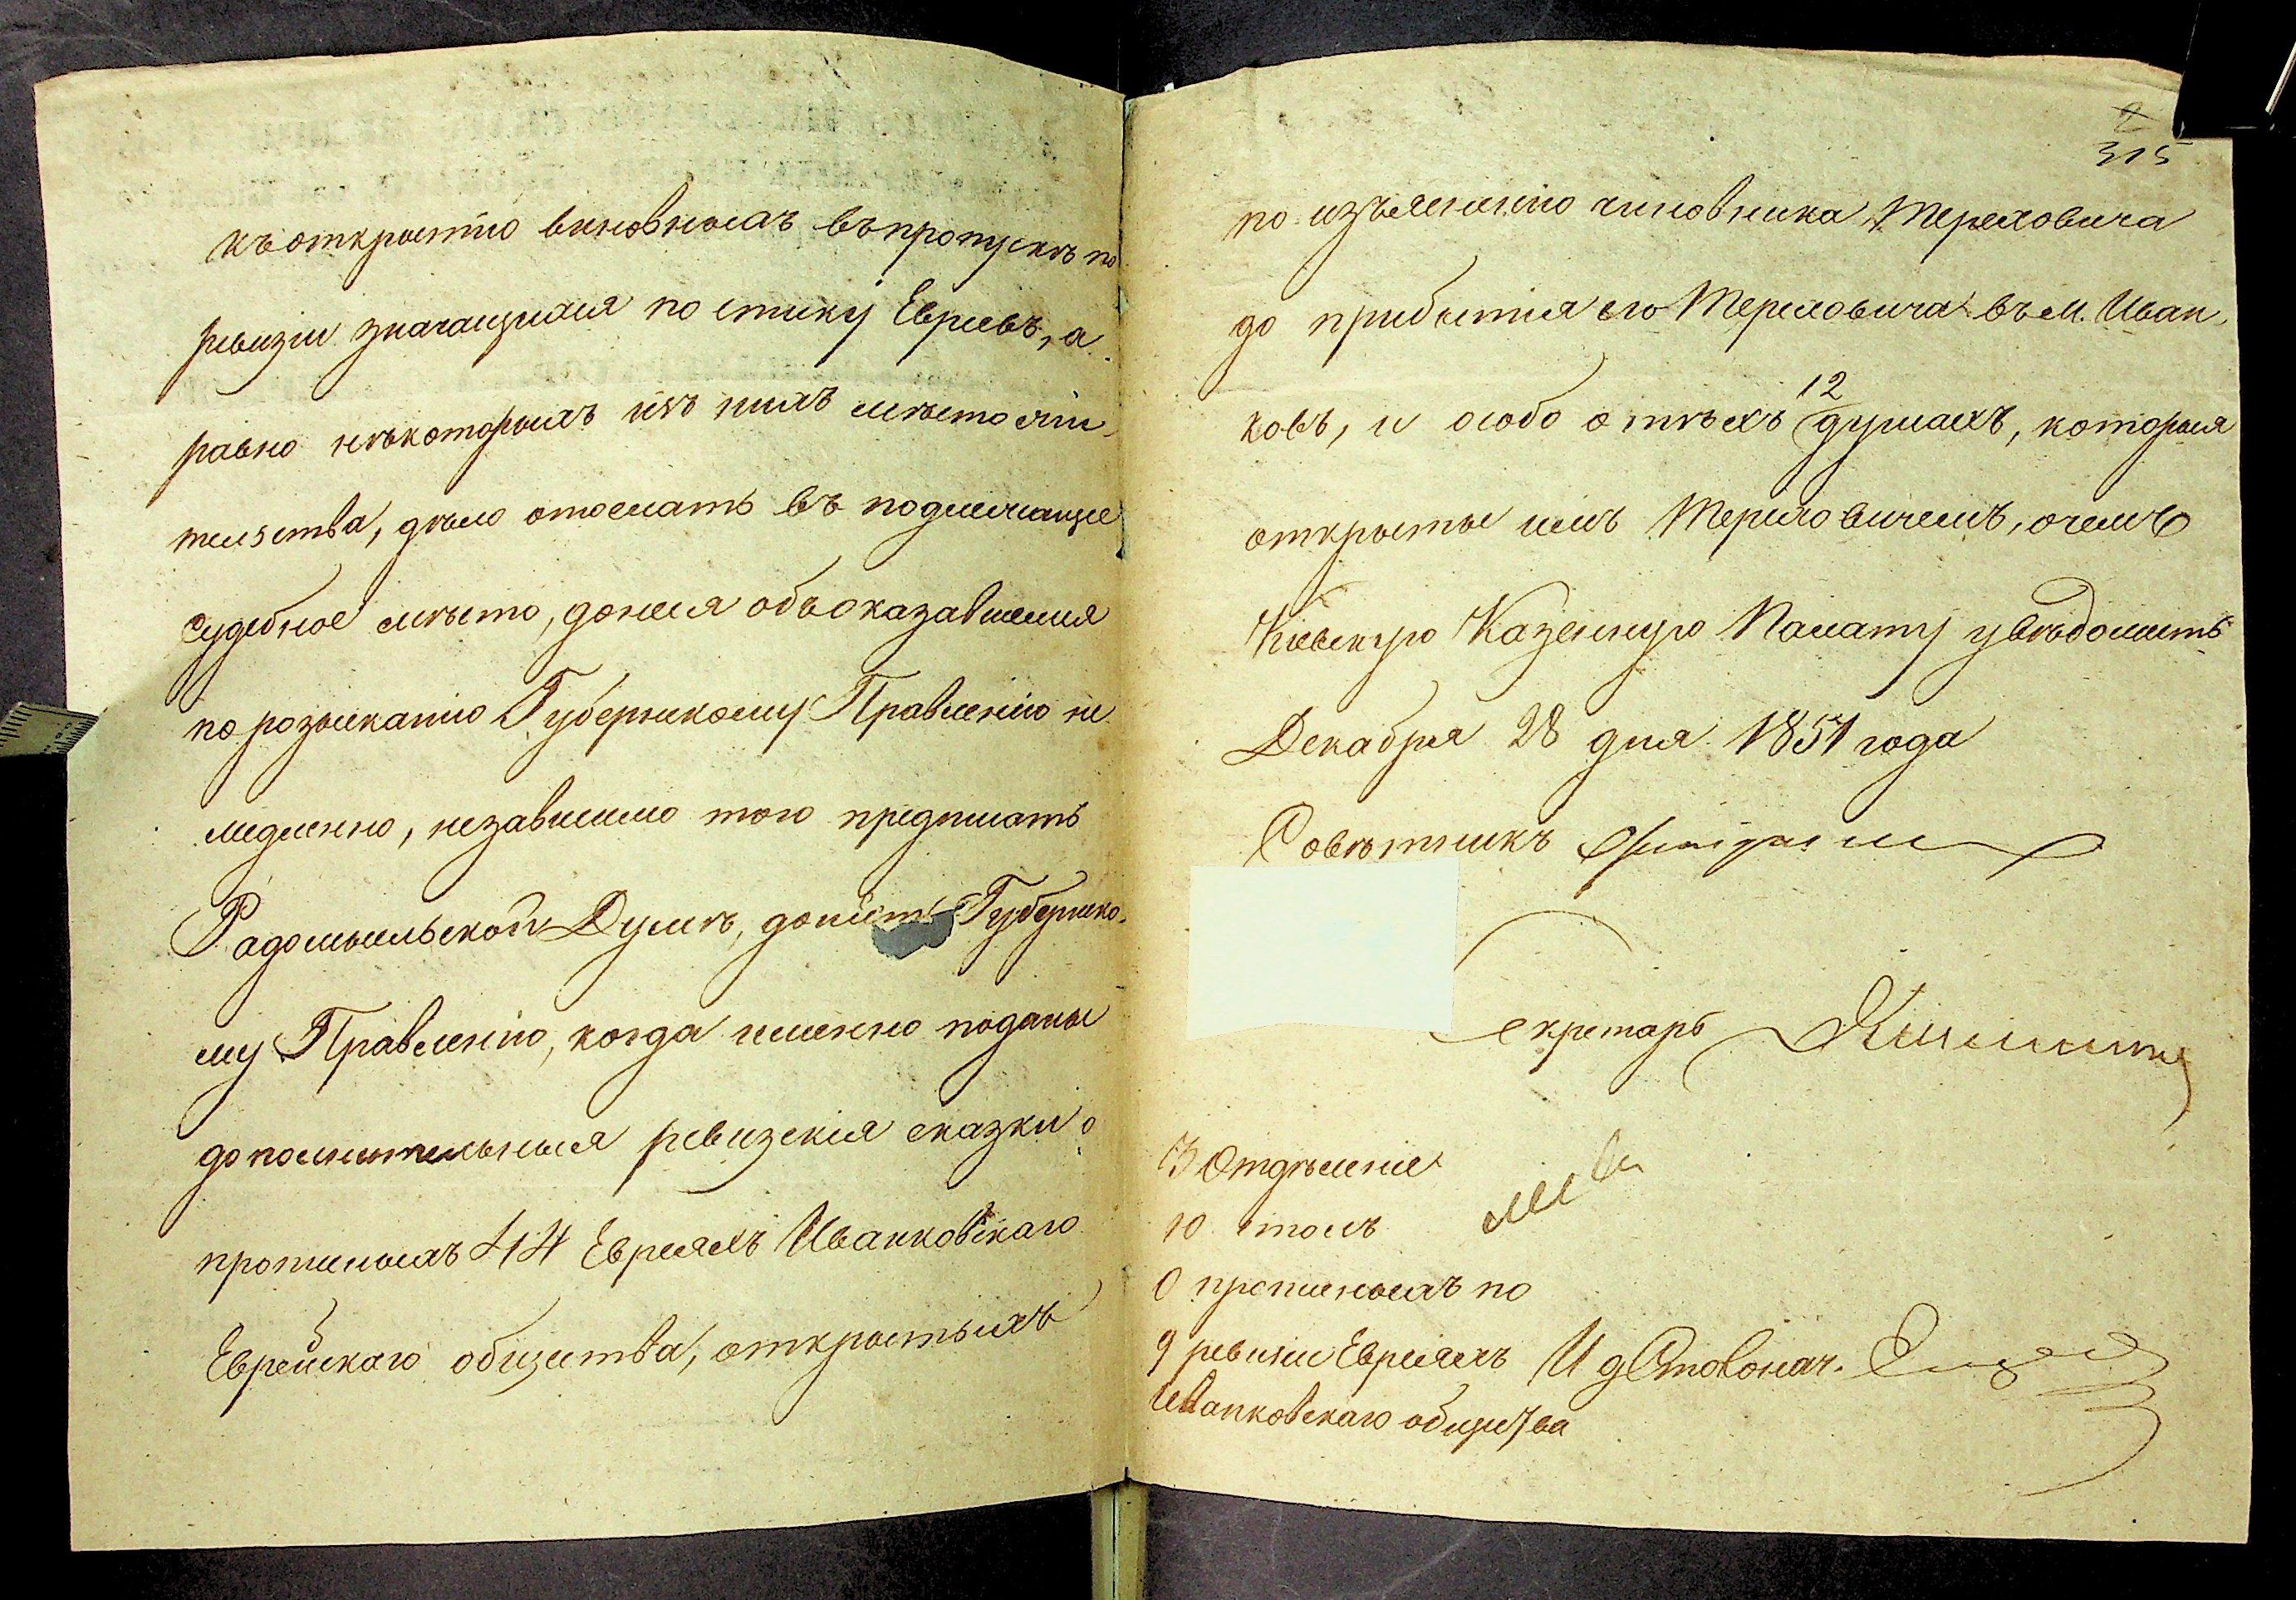 къ открытію виновныхъ въ пропускѣ по
ревизіи значащихся по списку Евреевъ, а
равно нѣкоторыхъ изъ нихъ мѣстожи-
тельства, дѣло отослать въ подлежащее
судебное мѣсто, донеся объ оказавшемся
по розысканію Губернскому Правленію не
медленно, независимо того предписать
Радомысльской Думѣ, донѣсть Губернско-
му Правленію, когда именно поданы
дополнительныя ревизскія сказки о
прописныхъ 44 Евреяхъ Иванковскаго
Еврейскаго общества, открытыхъ
2
315
по изъясненію чиновника Тереховича
до прибытія его Тереховича въ м. Иван-
ковъ, и особо о тѣхъ 12 душахъ, которыя
открыты имъ Тереховичемъ, о чемъ
Кіевскую Казенную Палату увѣдомить
Декабря 28 дня 1851 года
Совѣтникъ
Секретарь
3 Отдѣленіе
10 столъ
О прописныхъ по
9 ревизіи Евреяхъ И д Столонач.
Иванковскаго общества